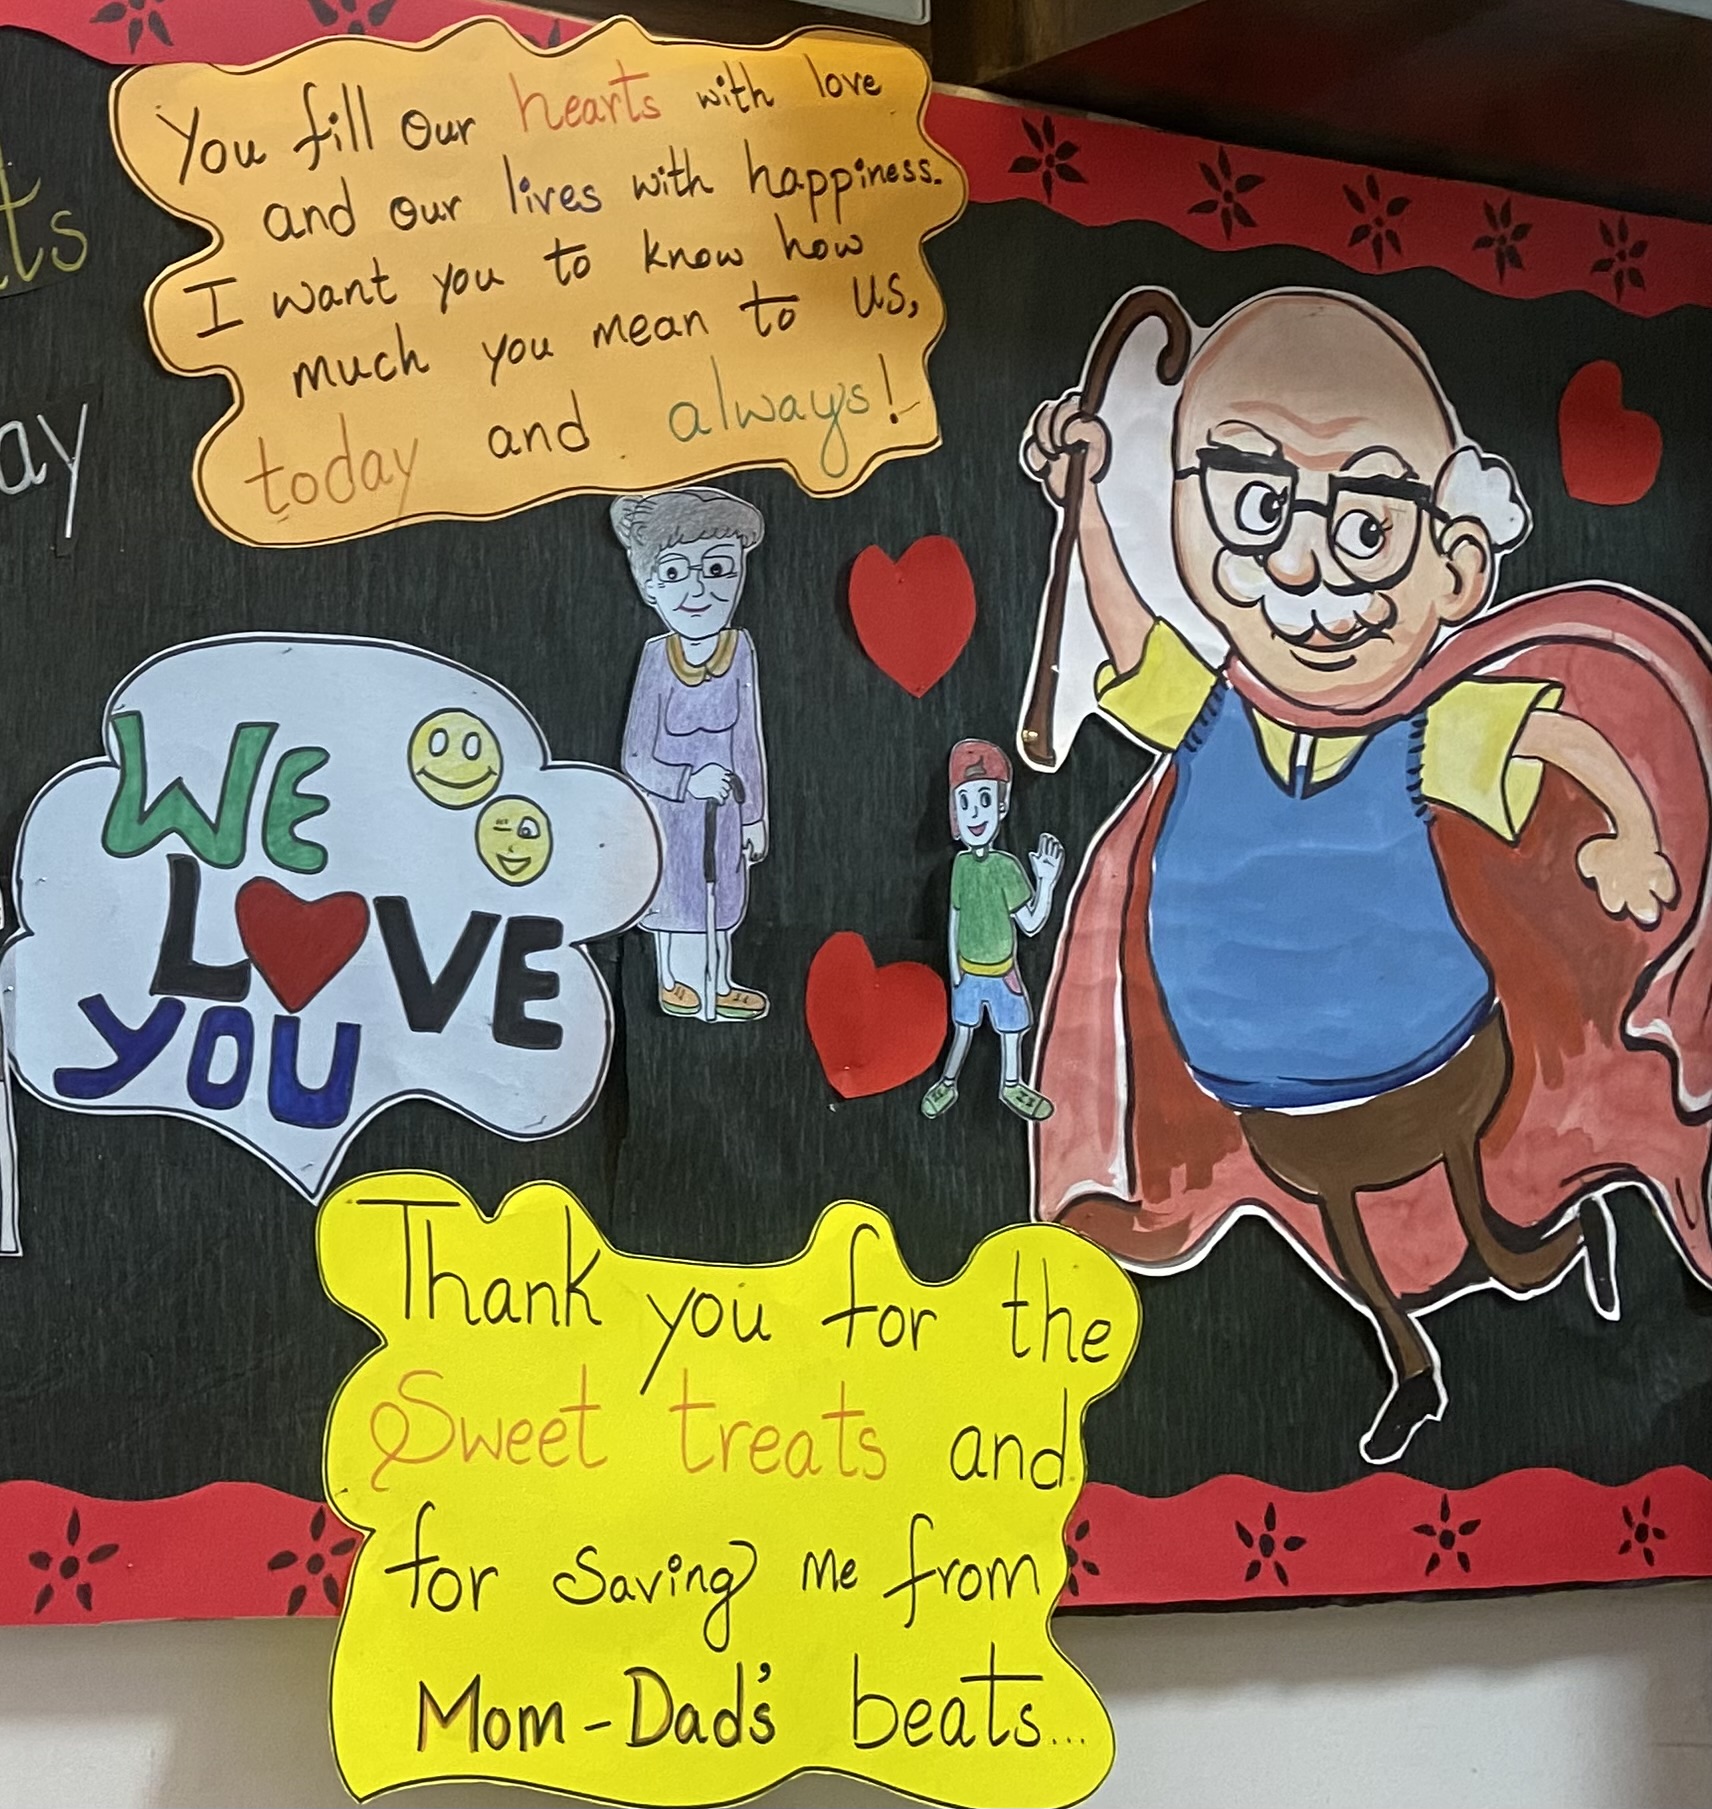 You fill our hearts with love
and our lives with happiness.
I want you to know how
much you mean to us,
today and always!
ts
ay
WE
LOVE
YOU
Thank you for the
Sweet treats and
for saving me from
Mom-Dad's beats...